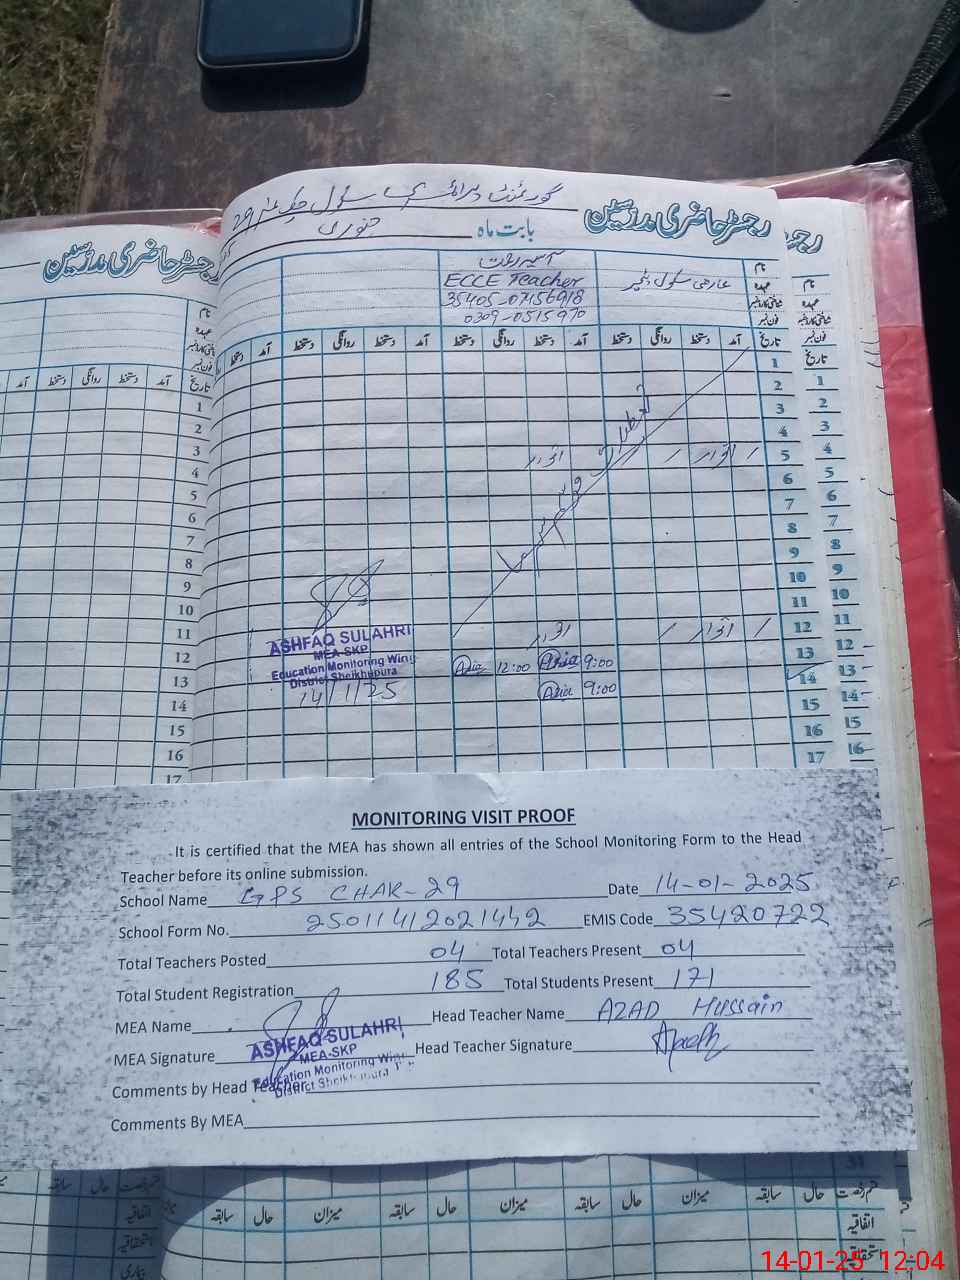 گورنمنٹ پرائمری سکول چک نمبر 29
رجسٹر حاضری مدرسین
بابت ماہ جنوری
رجسٹر حاضری مدرسین
نام
عہدہ
شناختی کارڈ نمبر
فون نمبر
ECCE Teacher
35405-07156918
0309-0515970
تاریخ
آمد
دستخط
روانگی
دستخط
آمد
دستخط
روانگی
دستخط
آمد
دستخط
روانگی
دستخط
1
2
3
4
5 اتوار اتوار
6
7
8
9
10
11
12 اتوار اتوار
13 9:00 Asia 12:00 Asia
14 9:00 Asia
15
16
17
ASHFAQ SULAHRI
MEA-SKP
Education Monitoring Wing
District Sheikhupura
14/1/25
MONITORING VISIT PROOF
It is certified that the MEA has shown all entries of the School Monitoring Form to the Head
Teacher before its online submission.
School Name GPS CHAK-29 Date 14-01-2025
School Form No. 25011412021442 EMIS Code 35420722
Total Teachers Posted 04 Total Teachers Present 04
Total Student Registration 185 Total Students Present 171
MEA Name Head Teacher Name AZAD Hussain
MEA Signature Head Teacher Signature
ASHFAQ SULAHRI
MEA-SKP
Education Monitoring Wing
District Sheikhupura
Comments by Head Teacher
Comments By MEA
31
سابقہ حال میزان سابقہ حال میزان سابقہ حال میزان سابقہ حال
اتفاقیہ
استحقاقیہ
بیماری
14-01-25 12:04